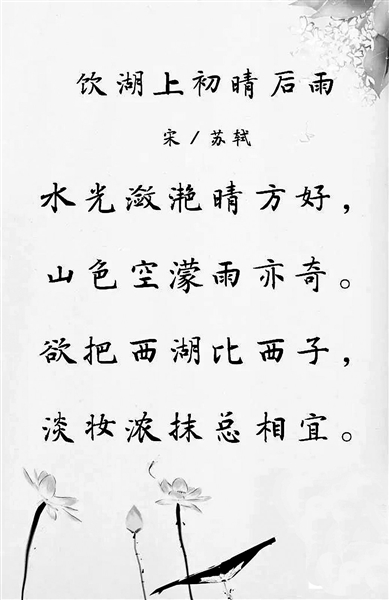 饮湖上初晴后雨
宋/苏轼
水光潋滟晴方好，
山色空濛雨亦奇。
欲把西湖比西子，
淡妆浓抹总相宜。